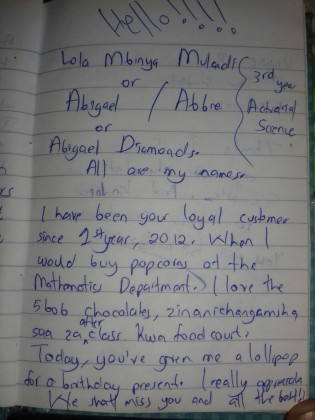 Hello!!!!
Lola Mbinya Mulandi
or
Abigael / Abbie
or
Abigael Diamonds.
All are my names.
3rd year
Actuarial
Science
I have been your loyal customer
since 1st year, 2012. When I
would buy popcorns at the
Mathematics Department. I love the
5bob chocolates, zinanichangamsha
saa za after class kwa food court.
Today, you've given me a lollipop
for a birthday present. I really appreciate
We shall miss you and all the best!!